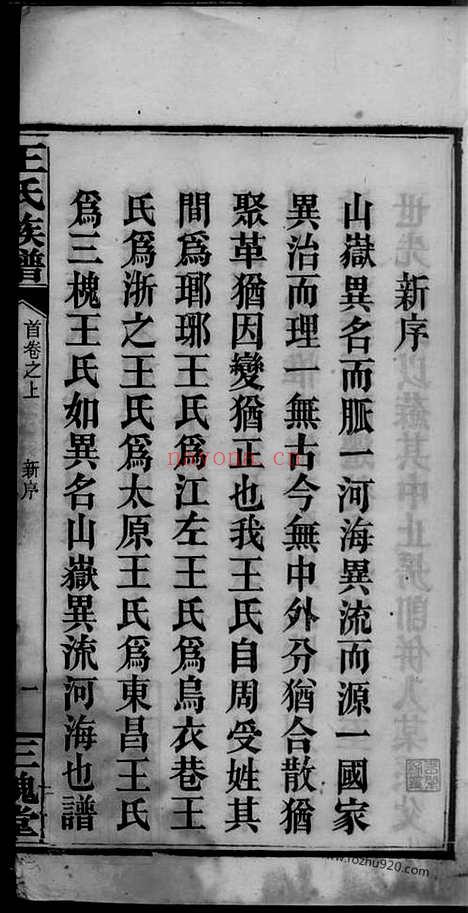 新序
山嶽異名而脈一河海異流而源一國家
異治而理一無古今無中外分猶合散猶
聚革猶因變猶正也我王氏自周受姓其
間爲瑯琊王氏爲江左王氏爲烏衣巷王
氏爲浙之王氏爲太原王氏爲東昌王氏
爲三槐王氏如異名山嶽異流河海也譜
王氏族譜
首卷之上
新序
一
三槐堂
nayona.cn
www.rozhu920.com